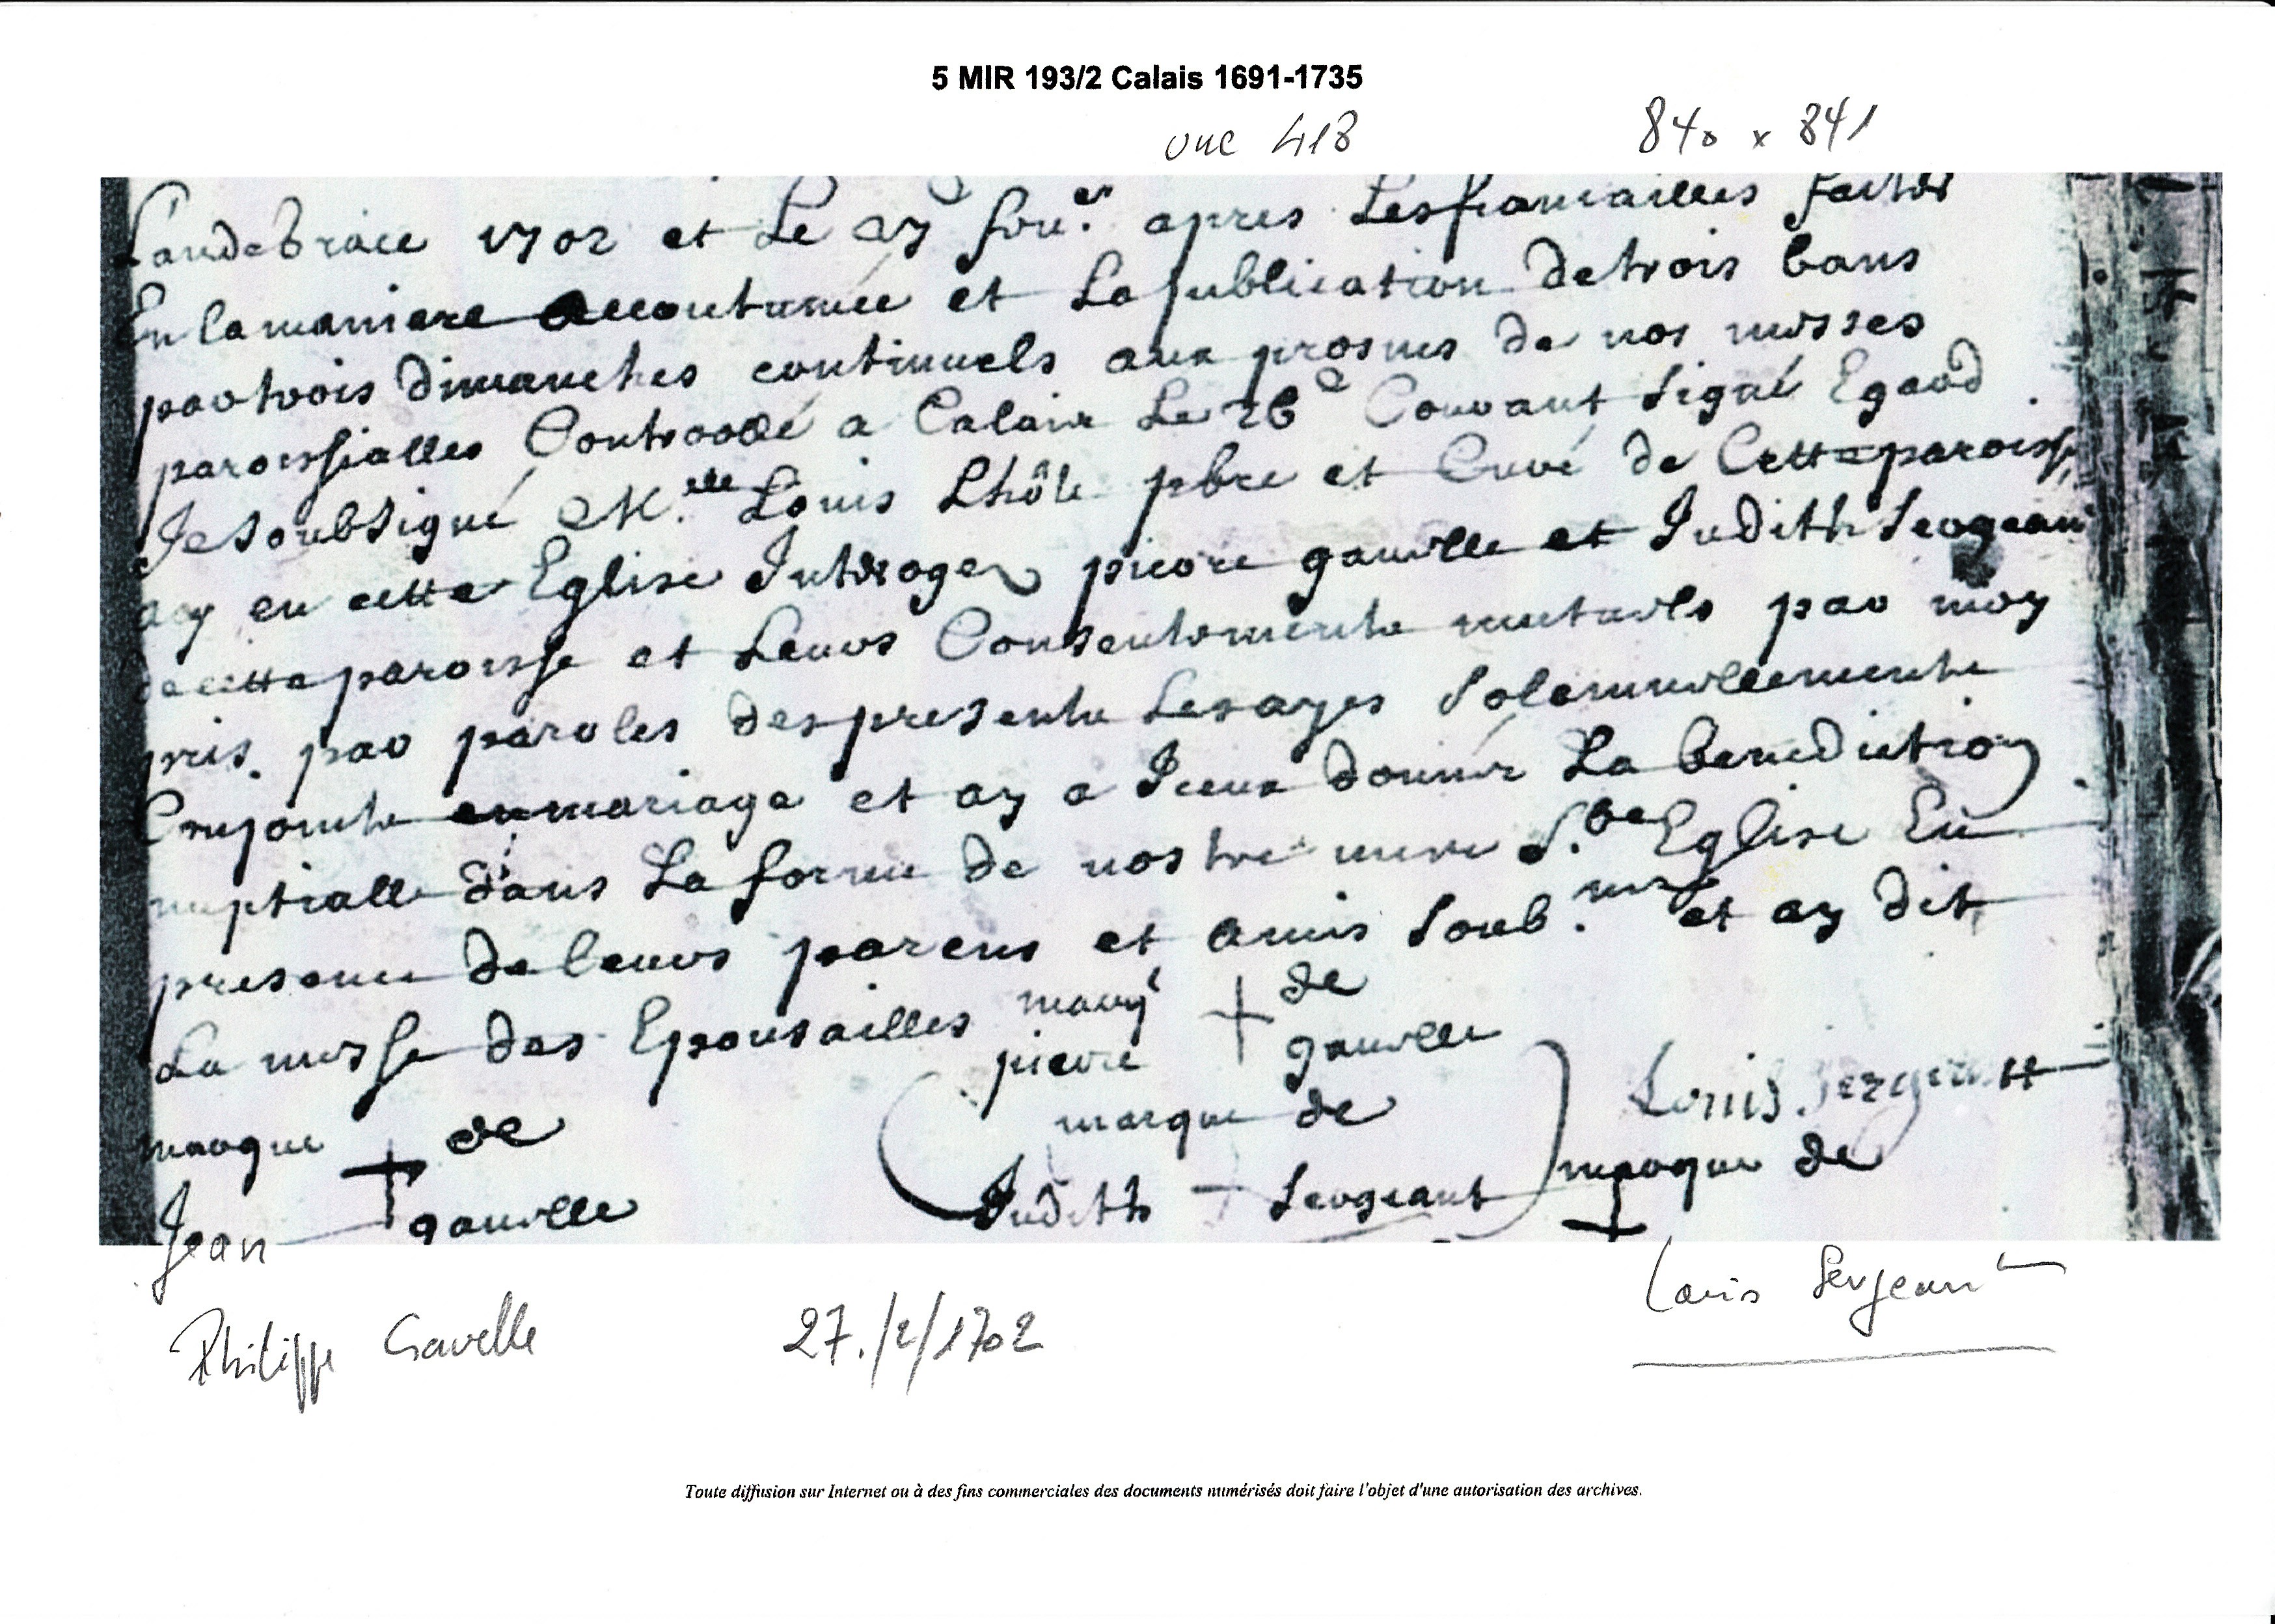 5 MIR 193/2 Calais 1691-1735
vue 418
840 x 841
L'an de Grace 1702 et Le 27 fevr. apres Les fiancailles faites
En la maniere accoutumée et La publication de trois bans
par trois dimanches continuels aux prosnes de nos messes
paroissialles Controollé a Calais Le 26e Courant Signé Egard
Je soubsigné Me Louis Lhôte pbre et Curé de Cette paroisse
ay en cette Eglise Interogé pierre gauville et Judith Sergeant
de cette paroisse et Leurs Consentements mutuels par moy
pris. par paroles des presents Les ayes Solemnellement
Conjoints en mariage et ay a Iceux donner La benediction
nuptialle dans La forme de nostre mere Ste Eglise En
presence de leurs parens et amis Soub. nez et ay dit
La messe des Epousailles
marq + de
pierre gauville
marque de
Judith Sergeant
Louis Sergeant
marque + de
Jean gauville
marque de
+
Philippe Gavelle
27./2/1702
Louis Sergeant
Toute diffusion sur Internet ou à des fins commerciales des documents numérisés doit faire l'objet d'une autorisation des archives.